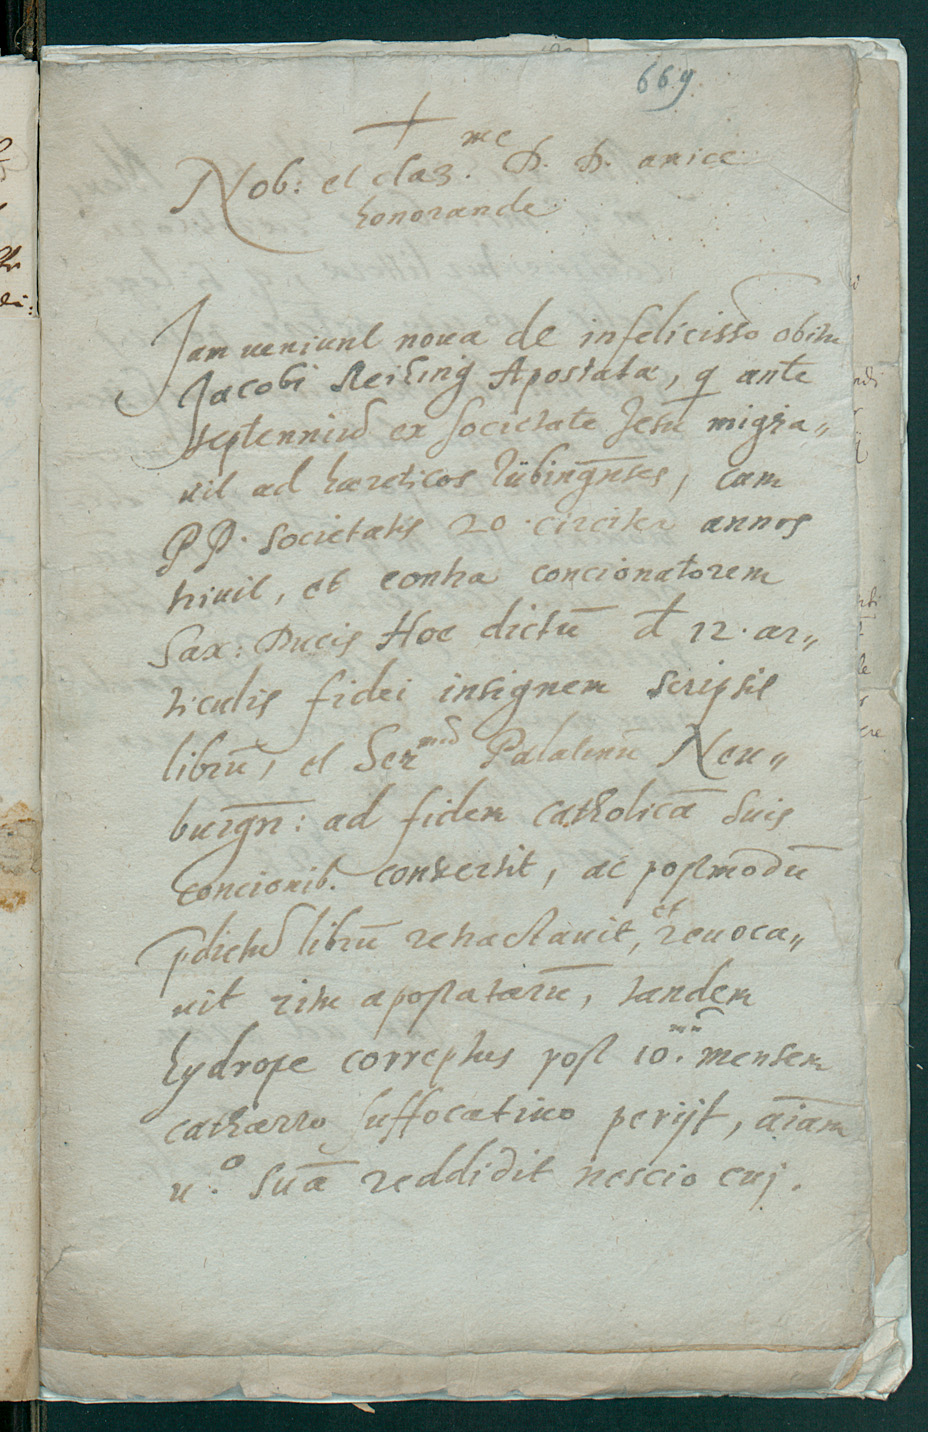 669.
Nob: et clar.me D. D. amice
honorande
Jam veniunt nova de infelicisso obitu
Jacobi Reihing Apostatæ, q ante
septenniū ex societate Jesu migra„
vit ad hæreticos Tübingn̄ses, cum
PP. Societatis 20. circiter annos
trivit, et contra concionatorem
Sax: Ducis Hoe dictū d 12. ar„
ticulis fidei insignem scripsit
librū, et Sermū Palatinū Neu„
burgn̄: ad fidem catholicā suis
concionib. convertit, ac postmodū
pdictū librū retractavit, et revoca„
vit ritu apostatarū, tandem
hydrope correptus post 10.mū mensem
catharro suffocativo perijt, aīam
v.o suā reddidit nescio cuj.